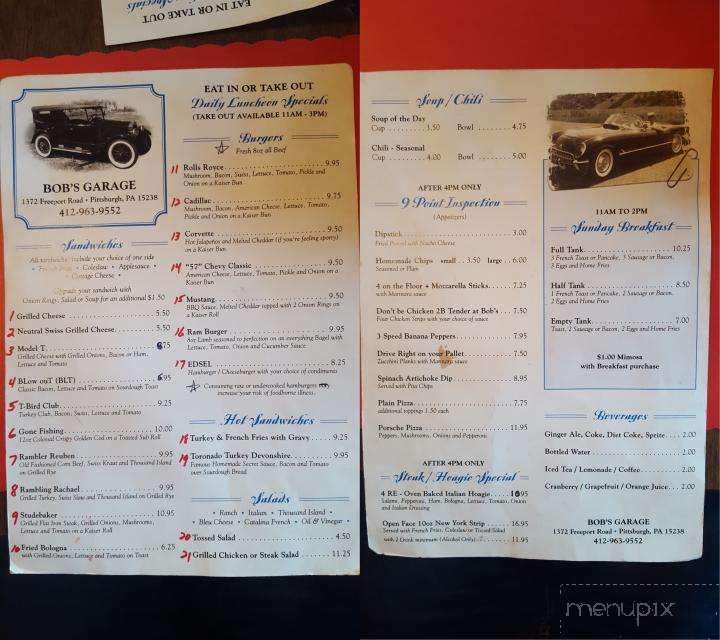 EAT IN OR TAKE OUT
BOB'S GARAGE
1372 Freeport Road • Pittsburgh, PA 15238
412-963-9552
Sandwiches
All sandwiches include your choice of one side
• French Fries • Coleslaw • Applesauce •
• Cottage Cheese •
Upgrade your sandwich with
Onion Rings, Salad or Soup for an additional $1.50
1 Grilled Cheese 5.50
2 Neutral Swiss Grilled Cheese 5.50
3 Model T 8.75
Grilled Cheese with Grilled Onions, Bacon or Ham,
Lettuce and Tomato
4 BLow ouT (BLT) 8.95
Classic Bacon, Lettuce and Tomato on Sourdough Toast
5 T-Bird Club 9.25
Turkey Club, Bacon, Swiss, Lettuce and Tomato
6 Gone Fishing 10.00
12oz Colossal Crispy Golden Cod on a Toasted Sub Roll
7 Rambler Reuben 9.95
Old Fashioned Corn Beef, Swiss, Kraut and Thousand Island
on Grilled Rye
8 Rambling Rachael 9.95
Grilled Turkey, Swiss Slaw and Thousand Island on Grilled Rye
9 Studebaker 10.95
Grilled Flat Iron Steak, Grilled Onions, Mushrooms,
Lettuce and Tomato on a Kaiser Roll
10 Fried Bologna 6.25
with Grilled Onions, Lettuce and Tomato on Toast
EAT IN OR TAKE OUT
Daily Luncheon Specials
(TAKE OUT AVAILABLE 11AM - 3PM)
Burgers
Fresh 8oz all Beef
11 Rolls Royce 9.95
Mushroom, Bacon, Swiss, Lettuce, Tomato, Pickle and
Onion on a Kaiser Bun
12 Cadillac 9.75
Mushroom, Bacon, American Cheese, Lettuce, Tomato,
Pickle and Onion on a Kaiser Bun
13 Corvette 9.50
Hot Jalapeños and Melted Cheddar (if you're feeling sporty)
on a Kaiser Bun
14 "57" Chevy Classic 9.50
American Cheese, Lettuce, Tomato, Pickle and Onion on a
Kaiser Bun
15 Mustang 9.50
BBQ Sauce, Melted Cheddar topped with 2 Onion Rings on
a Kaiser Roll
16 Ram Burger 9.95
8oz Lamb seasoned to perfection on an everything Bagel with
Lettuce, Tomato, Onion and Cucumber Sauce
17 EDSEL 8.25
Hamburger / Cheeseburger with your choice of condiments
Consuming raw or undercooked hamburgers may
increase your risk of foodborne illness.
Hot Sandwiches
18 Turkey & French Fries with Gravy 9.25
19 Toronado Turkey Devonshire 9.95
Famous Homemade Secret Sauce, Bacon and Tomato
over Sourdough Bread
Salads
• Ranch • Italian • Thousand Island •
• Bleu Cheese • Catalina French • Oil & Vinegar •
20 Tossed Salad 4.50
21 Grilled Chicken or Steak Salad 11.25
Soup / Chili
Soup of the Day
Cup 3.50 Bowl 4.75
Chili - Seasonal
Cup 4.00 Bowl 5.00
AFTER 4PM ONLY
9 Point Inspection
(Appetizers)
Dipstick 3.00
Fried Pretzel with Nacho Cheese
Homemade Chips small 3.50 large 6.00
Seasoned or Plain
4 on the Floor + Mozzarella Sticks 7.25
with Marinara sauce
Don't be Chicken 2B Tender at Bob's 7.50
Four Chicken Strips with your choice of sauce
3 Speed Banana Peppers 7.95
Drive Right on your Pallet 7.50
Zucchini Planks with Marinara sauce
Spinach Artichoke Dip 8.95
Served with Pita Chips
Plain Pizza 7.75
additional toppings 1.50 each
Porsche Pizza 11.95
Peppers, Mushrooms, Onions and Pepperoni
AFTER 4PM ONLY
Steak / Hoagie Special
4 RE - Oven Baked Italian Hoagie 10.95
Salami, Pepperoni, Ham, Bologna, Lettuce, Tomato, Onion
and Italian Dressing
Open Face 10oz New York Strip 16.95
Served with French Fries, Coleslaw or Tossed Salad
with 2 Drink minimum (Alcohol Only) 11.95
11AM TO 2PM
Sunday Breakfast
Full Tank 10.25
3 French Toast or Pancake, 3 Sausage or Bacon,
3 Eggs and Home Fries
Half Tank 8.50
1 French Toast or Pancake, 2 Sausage or Bacon,
2 Eggs and Home Fries
Empty Tank 7.00
Toast, 2 Sausage or Bacon, 2 Eggs and Home Fries
$1.00 Mimosa
with Breakfast purchase
Beverages
Ginger Ale, Coke, Diet Coke, Sprite 2.00
Bottled Water 2.00
Iced Tea / Lemonade / Coffee 2.00
Cranberry / Grapefruit / Orange Juice 2.00
BOB'S GARAGE
1372 Freeport Road • Pittsburgh, PA 15238
412-963-9552
menupix